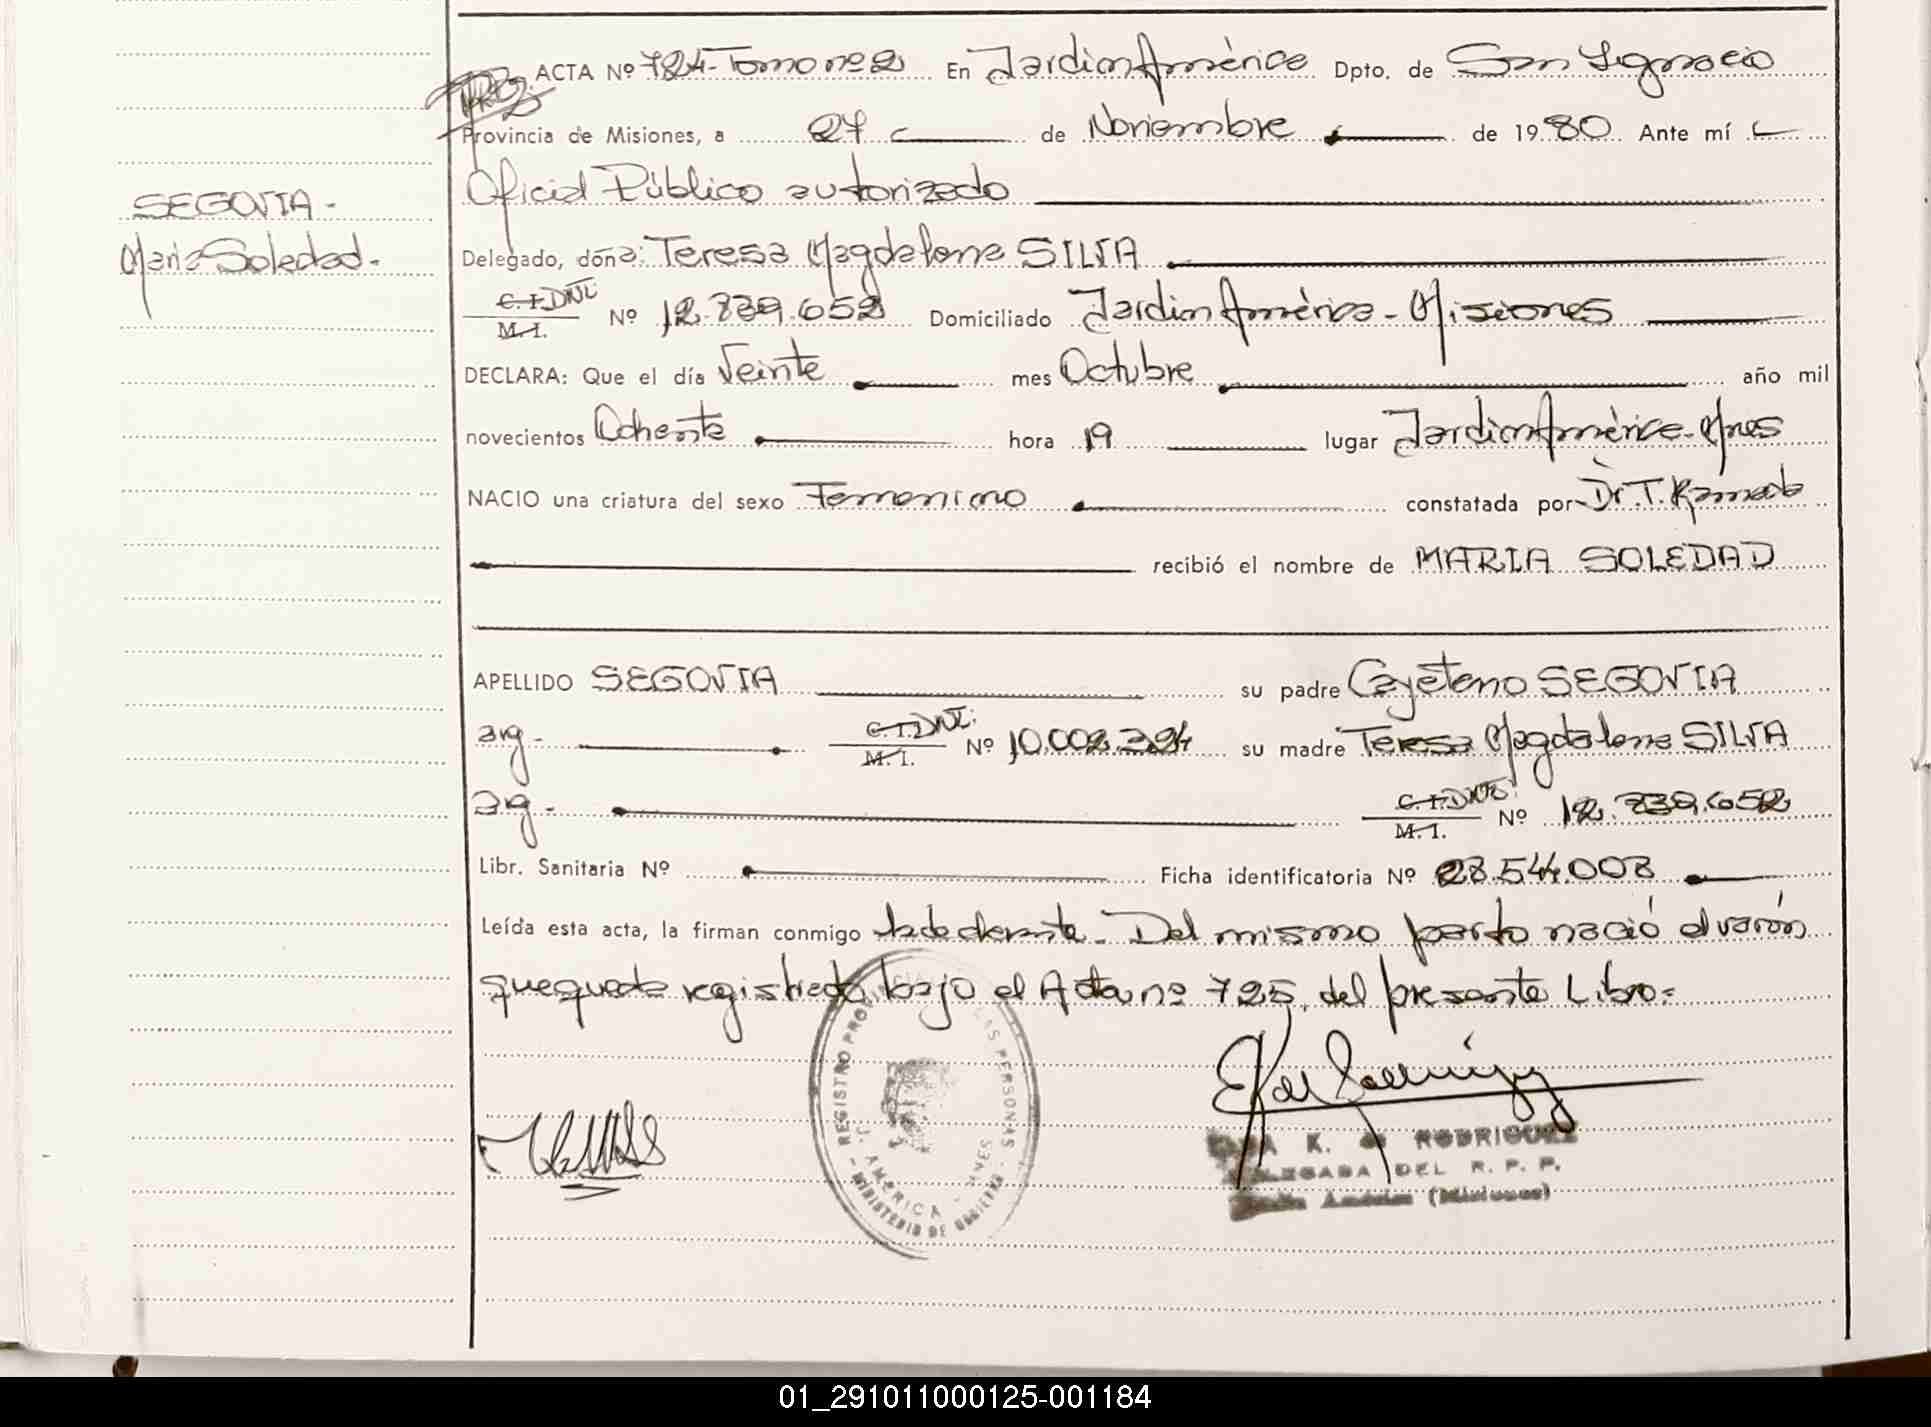 ACTA Nº 724- Tomo nº 2 En Jardín América Dpto. de San Ignacio
Provincia de Misiones, a 27 de Noviembre de 1980 Ante mí
Oficial Público autorizado
SEGOVIA -
Maria Soledad.
Delegado, doña: Teresa Magdalena SILVA
C. I. DNI
M. I. Nº 12.739.652 Domiciliado Jardín América - Misiones
DECLARA: Que el día Veinte mes Octubre año mil
novecientos Ochenta hora 19 lugar Jardín América - Mnes
NACIO una criatura del sexo Femenino constatada por Dr. T.
recibió el nombre de MARIA SOLEDAD
APELLIDO SEGOVIA su padre Cayetano SEGOVIA
arg - C. I. DNI:
M. I. Nº 10.002.394 su madre Teresa Magdalena SILVA
arg - C. I. DNI:
M. I. Nº 12.739.652
Libr. Sanitaria Nº Ficha identificatoria Nº 28.544.008
Leída esta acta, la firman conmigo la declarante. Del mismo parto nació el varón
que queda registrado bajo el Acta nº 725, del presente Libro=
REGISTRO PROVINCIAL DE LAS PERSONAS
J. AMERICA - MNES
- MINISTERIO DE GOBIERNO -
K. de RODRIGUEZ
DELEGADA DEL R. P. P.
Jardín América (Misiones)
01_291011000125-001184